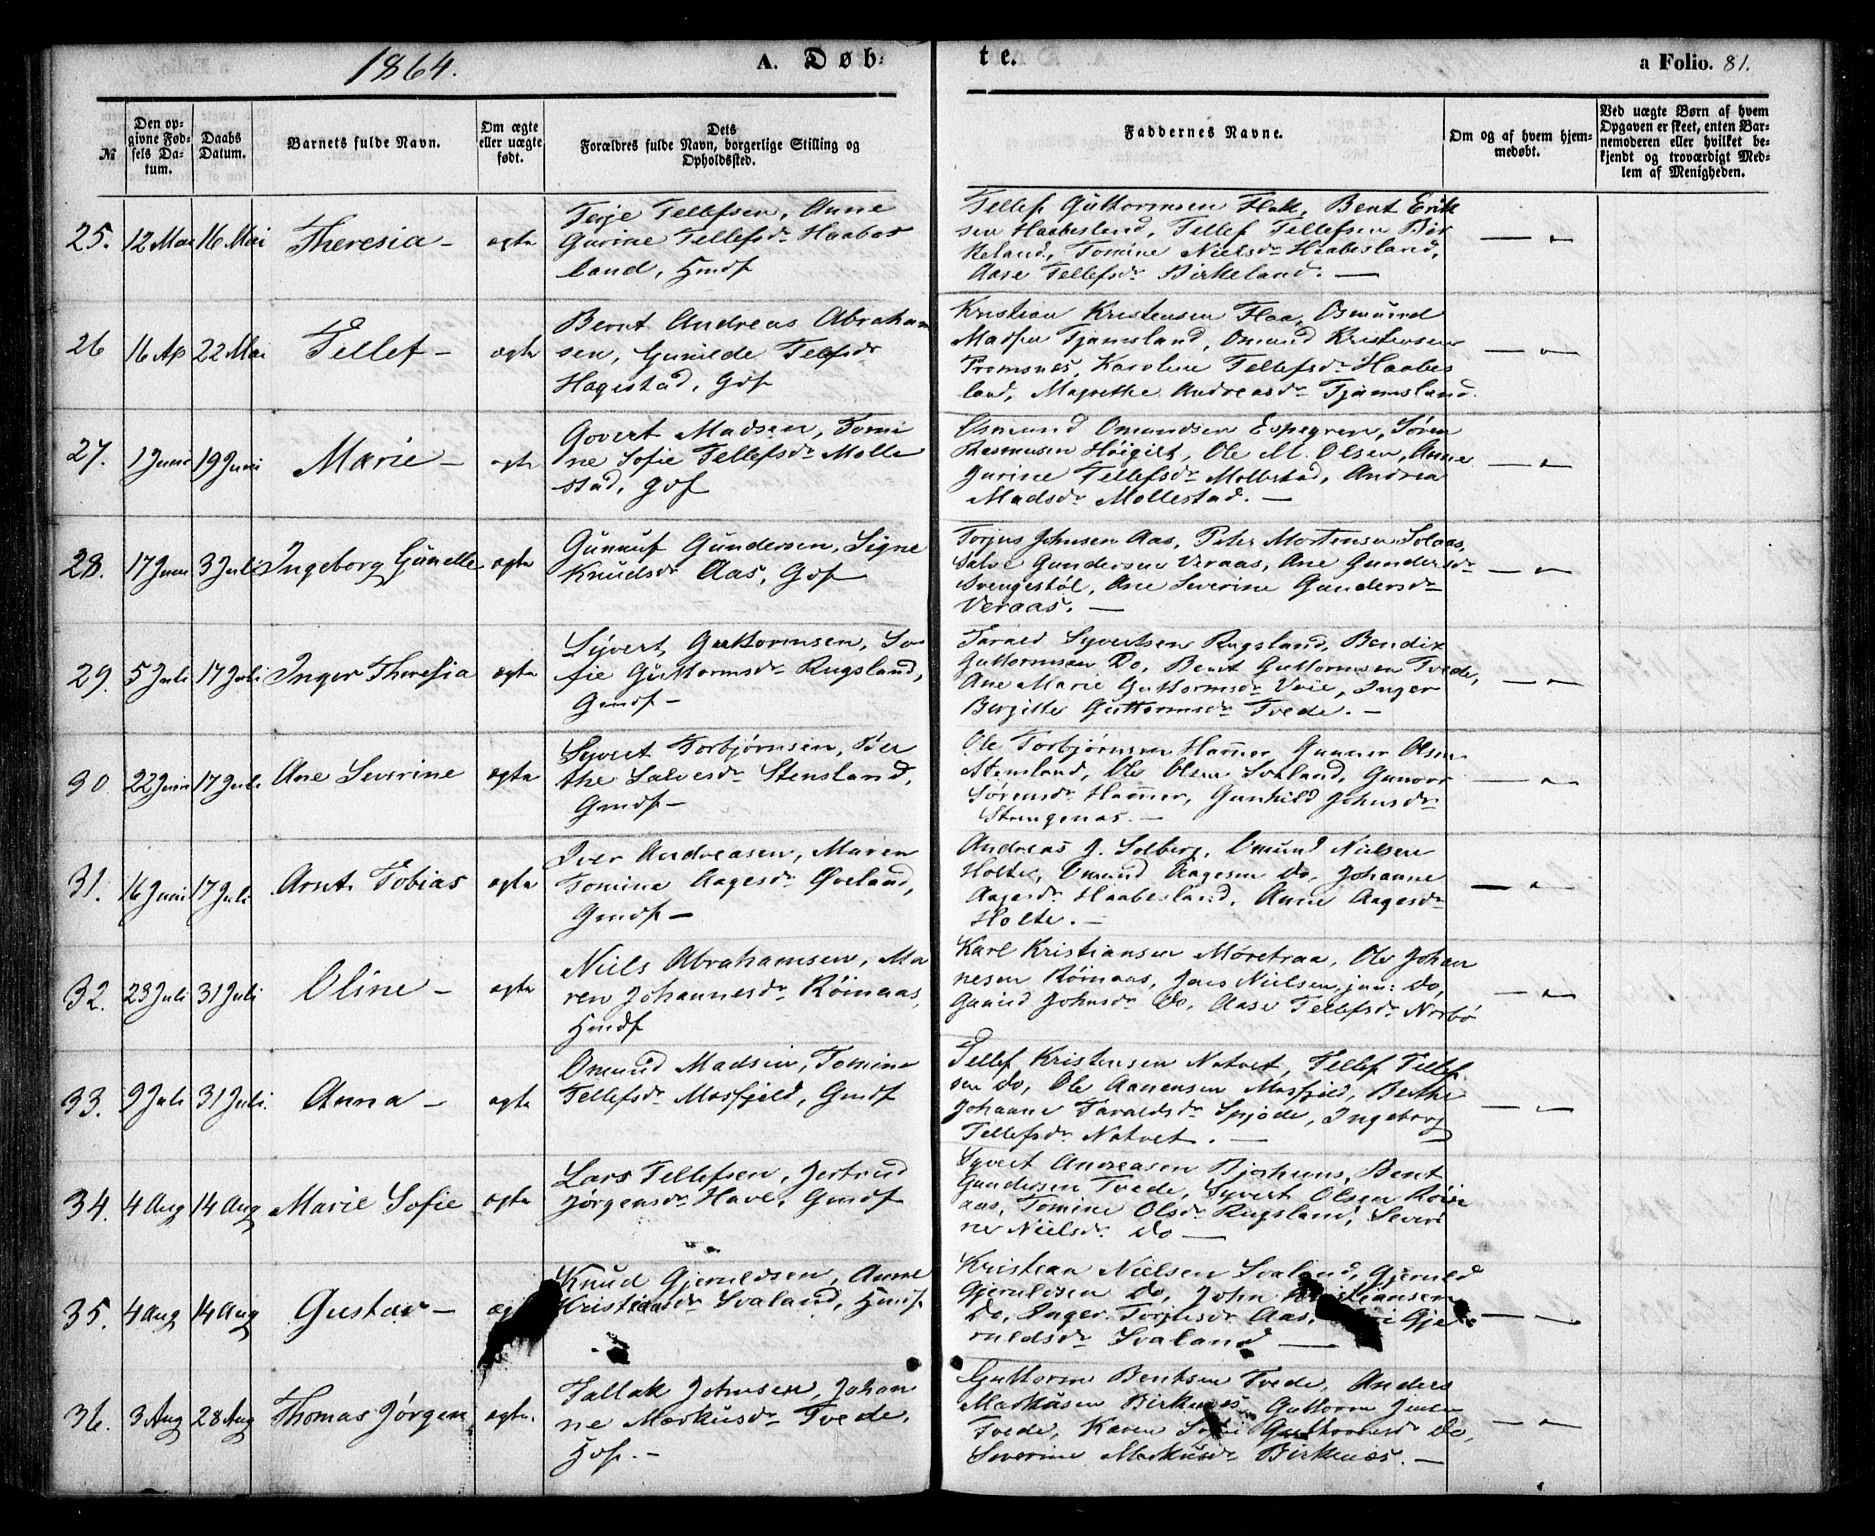 1864.
A. Døb-
te.
a Folio. 81.
№
Den op-
givne Fød-
sels Da-
tum.
Daabs
Datum.
Barnets fulde Navn.
Om ægte
eller uægte
født.
Dets
Forældres fulde Navn, borgerlige Stilling og
Opholdssted.
Faddernes Navne.
Om og af hvem hjem-
medøbt.
Ved uægte Børn af hvem
Opgaven er skeet, enten Bar-
nemoderen eller hvilket be-
kjendt og troværdigt Med-
lem af Menigheden.
25. 12 Mai 16 Mai Theresia – ægte
Terje Tellefsen, Anne
Gurine Tellefsdr Haabes
land,
Tellef Guttormsen Flak, Bent Erik
sen Haabesland, Tellef Tellefsen Bir
keland, Tomine Nielsdr Haabesland,
Aase Tellefsdr Birkeland. —
— „ —
26 16 Ap 22 Mai Tellef – ægte
Bernt Andreas Abraham
sen, Gunilde Telefsdr
Hagestad, Gdf
Kristian Kristensen Flaa, Osmund
Tjamsland, Omund Kristensen
Karoline Tellefsdr Haabes
land, Magrethe Andreasdr Tjamsland.
— „ —
27. 1 Juni 19 Juni Marie – ægte
Govert Madsen, Tomi
ne Sofie Tellefsdr Molle
stad, Gdf
Osmund Omundsen Espegren, Søren
Rasmusen Høigilt, Ole M. Olsen, Anne
Gurine Tellefsdr Mollestad, Andrea
Madsdr Mollestad. —
— „ —
28. 17 Juni 3 Juli Ingeborg Gunelle ægte
Gunnuf Gundersen, Signe
Knudsdr Aas, Gdf
Torjus Johnsen Aas, Peter Mortensen Solaas,
Salve Gundersen Veraas, Ane Gundersdr
Svengestøl, Ane Severine Gundersdr
Veraas. —
— „ —
29. 5 Juli 17 Juli Inger Theresia ægte
Syvert Guttormsen, So
fie Guttormsdr Rugsland,
Gmdf –
Tarald Syvertsen Rugsland, Bendix
Guttormsen Do, Bent Guttormsen Tvede,
Ane Marie Guttormsdr Vvie, Inger
Birgitte Guttormsdr Tvede. –
— „ —
30 22 Juni 17 Juli Ane Severine ægte
Syvert Torbjørnsen, Ber
the Salvesdr Stensland,
Gmdf –
Ole Torbjørnsen Hamer, Gunner Olsen
Stensland, Ole Olsen Svaland, Gunvor
Sørensdr Hamer, Gunhild Johnsdr
Strengenas. –
— „ —
31. 16 Juni 17 Juli Arnt Tobias ægte
Iver Andreasen, Maren
Tomine Aagesdr Øveland,
Gmdf –
Andreas J. Solberg, Omund Nielsen
Holte, Omund Aagesen Do, Johanne
Aagesdr Haabesland, Anne Aagesdr
Holte. –
— „ —
32. 23 Juli 31 Juli Oline – ægte
Niels Abrahamsen, Ma
ren Johannesdr Römaas,
Karl Kristiansen Møretraa, Ole Johan
nesen Römaas, Jens Nielsen, jun: Do,
Gunild Johnsdr Do, Aase Tellefsdr Norbø
— „ —
33. 9 Juli 31 Juli. Anna – ægte
Omund Madsen, Tomine
Tellefsdr Mosfjeld, Gmdf
Tellef Kristensen Natvet, Tellef Tellef
sen Do, Ole Aanensen Mosfjeld, Berthe
Johanne Taraldsdr Spjøde, Ingeborg
Tellefsdr Natvet. —
— „ —
34. 4 Aug 14 Aug Marie Sofie ægte
Lars Tellefsen, Jertrud
Jørgensdr Have, Gmdf
Syvert Andreasen Bjorhuus, Bent
Gundersen Tvede, Syvert Olsen Röim
aas, Tomine Olsdr Rugsland, Severi
ne Nielsdr Do —
35. 4 Aug 14 Aug Gustav – ægte
Knud Gjeruldsen, Anne
Kristiansdr Svaland,
Kristian Nielsen Svaland, Gjeruld
Gjeruldsen Do, John Kristiansen
Do, Inger Torjusdr Aas, Gje
ruldsdr Svaland —
— „ —
36. 3 Aug 28 Aug Thomas Jørgen ægte.
Tallak Johnsen, Johan
ne Markusdr Tvede,
Guttorm Bentsen Tvede, Anders
Markusen Birkenes, Guttorm Jensen
Tvede, Karen Sofie Guttormsdr Do,
Severine Markusdr Birkenes. —
— „ —